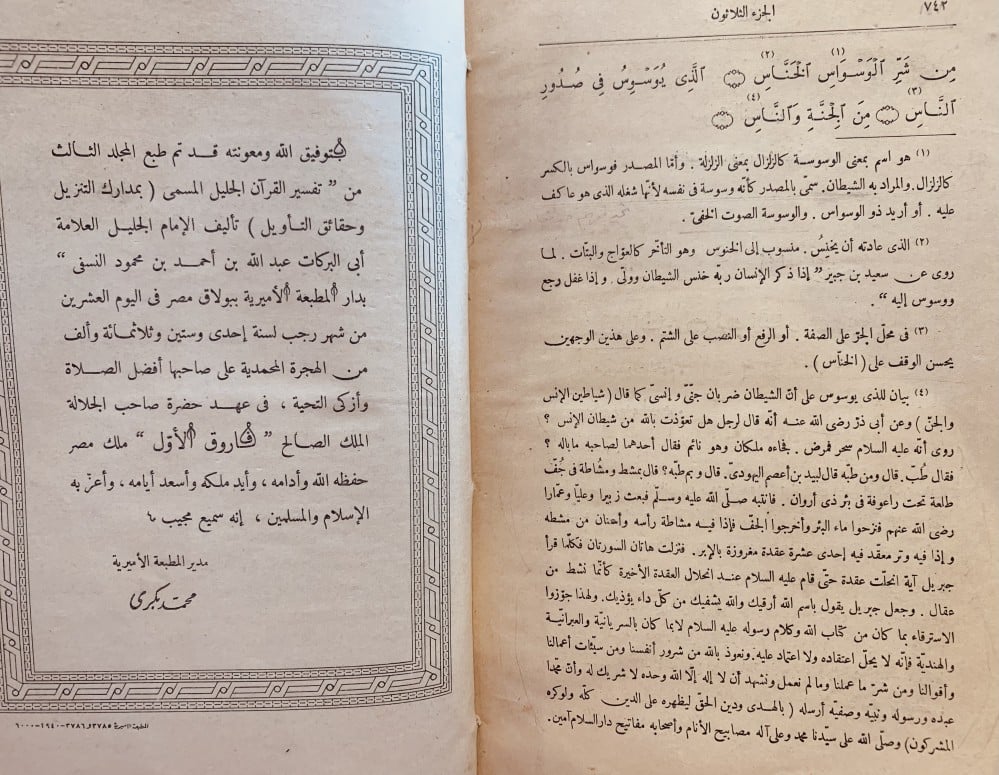 ٧٤٢
الجزء الثلاثون
مِن شَرِّ ٱلْوَسْوَاسِ (١) ٱلْخَنَّاسِ (٢) ٱلَّذِى يُوَسْوِسُ فِى صُدُورِ
ٱلنَّاسِ (٣) مِنَ ٱلْجِنَّةِ وَٱلنَّاسِ (٤)
(١) هو اسم بمعنى الوسوسة كالزلزال بمعنى الزلزلة . وأمّا المصدر فوسواس بالكسر
كالزلزال. والمراد به الشيطان. سمّى بالمصدر كأنّه وسوسة فى نفسه لأنّها شغله الذى هو عاكف
عليه . أو أريد ذو الوسواس . والوسوسة الصوت الخفىّ .
(٢) الذى عادته أن يخنِسُ . منسوب إلى الخنوس وهو التأخّر كالعوّاج والبتّات . لما
روى عن سعيد بن جبير " إذا ذكر الإنسان ربّه خنس الشيطان وولّى . وإذا غفل رجع
ووسوس إليه " .
(٣) فى محلّ الجرّ على الصفة . أو الرفع أو النصب على الشتم . وعلى هذين الوجهين
يحسن الوقف على ( الخنّاس ) .
(٤) بيان للذى يوسوس على أنّ الشيطان ضربان جنّىّ وإنسىّ كما قال ( شياطين الإنس
والجنّ ) وعن أبى ذرّ رضى الله عنه أنّه قال لرجل هل تعوّذت بالله من شيطان الإنس ؟
روى أنّه عليه السلام سحر فمرض . فجاءه ملكان وهو نائم فقال أحدهما لصاحبه ماباله ؟
فقال طُبّ . قال ومن طبّه قال لبيد بن أعصم اليهودىّ. قال وبم طبّه؟ قال بمشط ومشاطة فى جُفّ
طالعة تحت راعوفة فى بئر ذى أروان . فانتبه صلّى الله عليه وسلّم فبعث زبيرا وعليّا وعمّارا
رضى الله عنهم فنزحوا ماء البئر وأخرجوا الجفّ فإذا فيه مشاطة رأسه وأسنان من مشطه
وإذا فيه وتر معقّد فيه إحدى عشرة عقدة مغروزة بالإبر . فنزلت هاتان السورتان فكلّما قرأ
جبريل آية انحلّت عقدة حتّى قام عليه السلام عند انحلال العقدة الأخيرة كأنّما نشط من
عقال . وجعل جبريل يقول باسم الله أرقيك والله يشفيك من كلّ داء يؤذيك. ولهذا جوّزوا
الاسترقاء بما كان من كتاب الله وكلام رسوله عليه السلام لابما كان بالسريانيّة والعبرانيّة
والهنديّة فإنّه لا يحلّ اعتقاده ولا اعتماد عليه. ونعوذ بالله من شرور أنفسنا ومن سيّئات أعمالنا
وأقوالنا ومن شرّ ما عملنا وما لم نعمل ونشهد أن لا إله إلّا الله وحده لا شريك له وأنّ محمّدا
عبده ورسوله ونبيّه وصفيّه أرسله ( بالهدى ودين الحقّ ليظهره على الدين كلّه ولوكره
المشركون) وصلّى الله على سيّدنا محمد وعلى آله مصابيح الأنام وأصحابه مفاتيح دار السلام آمين.
بتوفيق الله ومعونته قد تم طبع المجلد الثالث
من " تفسير القرآن الجليل المسمى ( بمدارك التنزيل
وحقائق التأويل ) تأليف الإمام الجليل العلامة
أبى البركات عبد الله بن أحمد بن محمود النسفى "
بدار المطبعة الأميرية ببولاق مصر فى اليوم العشرين
من شهر رجب لسنة إحدى وستين وثلاثمائة وألف
من الهجرة المحمدية على صاحبها أفضل الصلاة
وأزكى التحية ، فى عهد حضرة صاحب الجلالة
الملك الصالح " فاروق الأوّل " ملك مصر
حفظه الله وأدامه ، وأيد ملكه وأسعد أيامه ، وأعزّ به
الإسلام والمسلمين ، إنه سميع مجيب
مدير المطبعة الأميرية
محمد بكرى
المطبعة الأميرية ٣٧٨٥ و ٣٧٨٦-١٩٤٠-٦٠٠٠